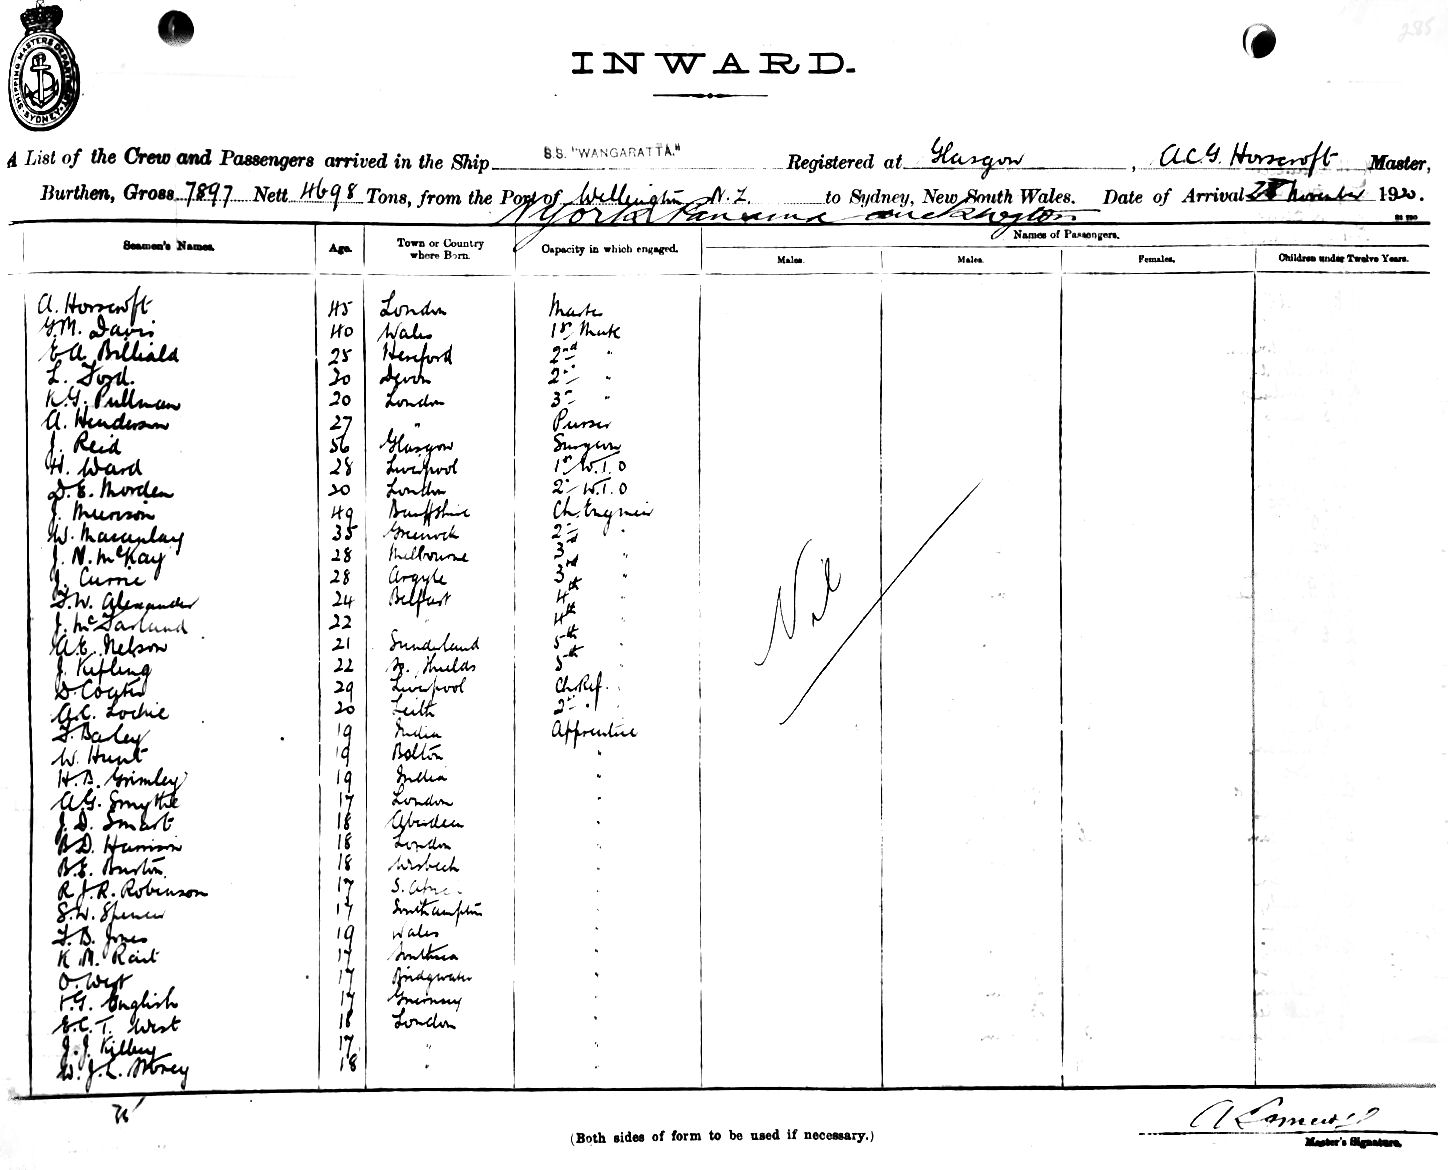 285
SHIPPING MASTERS DEPARTMENT SYDNEY
INWARD.
A List of the Crew and Passengers arrived in the Ship S.S. "WANGARATTA." Registered at Glasgow, A.C.G. Horscroft Master,
Burthen, Gross 7897 Nett 4698 Tons, from the Port of Wellington N.Z. to Sydney, New South Wales. Date of Arrival November 1920.
N York Panama
Names of Passengers.
Seamen's Names. Age. Town or Country where Born. Capacity in which engaged. Males. Males. Females. Children under Twelve Years.
A. Horscroft 45 London Master
G.M. Davis 40 Wales 1st Mate
E A Billiald 25 Hereford 2nd "
L. Ford. Devon 2nd "
K.G. Pullman 20 London 3rd "
A. Henderson 27 " Purser
J. Reid 56 Glasgow Surgeon
H. Ward 28 Liverpool 1st W.T.O
D.E. Morden 20 London 2nd W.T.O
J. Murison 49 Banffshire Ch. Engineer
W. Macaulay 35 Greenock 2nd "
J. N. McKay 28 Melbourne 3rd "
J. Currie 28 Argyle 3rd "
F.W. Alexander 24 Belfast 4th "
J. McFarland 22 " 4th "
A.E. Nelson 21 Sunderland 5th "
J. Kipling 22 So. Shields 5th "
D. Coates 29 Liverpool Ch. Ref.
A.C. Lochie 20 Leith 2nd "
F. Baley 19 India Apprentice
W. Hunt 19 Bolton "
H.B. Grimley 19 India "
A.G. Smythe 17 London "
J.D. Smart 18 Aberdeen "
B.D. Harrison 18 London "
B.E. Burton. 18 Wisbech "
R J.R. Robinson 17 S. Africa "
S.W. Spencer 17 Southampton "
F.B. Jones 19 Wales "
K M. Rait 17 Southsea "
O. West 17 Bridgwater "
G. English 17 Guernsey "
E.C.T. West 18 London "
J.J. Kilbey 17 " "
W.J.L. Storey 18 " "
Nil
(Both sides of form to be used if necessary.)
Master's Signature.